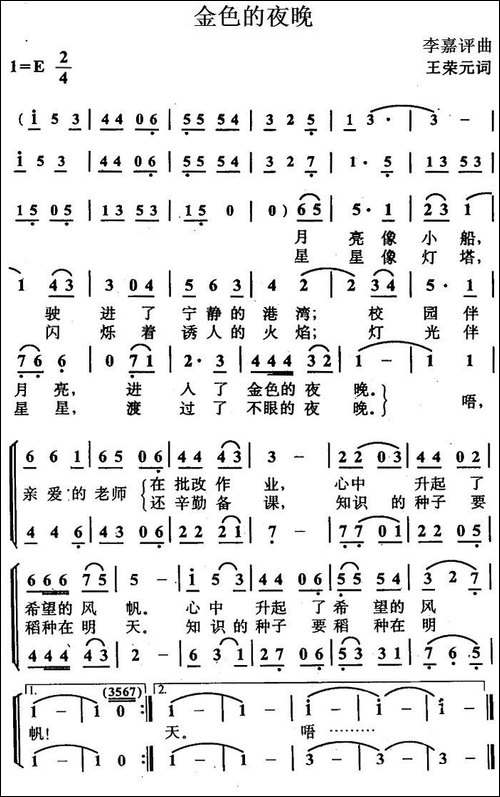 金色的夜晚
李嘉评曲
1=E 2/4
王荣元词
(i 5 3 | 4 4 0 6 | 5 5 5 4 | 3 2 5 | 1 3 · | 3 - |
i 5 3 | 4 4 0 6 | 5 5 5 4 | 3 2 7 | 1 · 5 | 1 3 5 3 |
1 5 0 5 | 1 3 5 3 | 1 5 0 0) 6 5 | 5 · 1 | 2 3 1 |
月 亮 像 小 船,
星 星 像 灯 塔,
1 4 3 | 3 0 4 | 5 6 3 | 2 - | 2 3 4 | 5 · 1 |
驶 进 了 宁 静 的 港 湾; 校 园 伴
闪 烁 着 诱 人 的 火 焰; 灯 光 伴
7 6 6 | 0 7 1 | 2 · 3 | 4 4 4 3 2 | 1 - | 1 1 |
月 亮, 进 入 了 金色的 夜 晚。 唔,
星 星, 渡 过 了 不眠的 夜 晚。
6 6 1 | 6 5 0 6 | 4 4 4 3 | 3 - | 2 2 0 3 | 4 4 0 2 |
亲 爱 的 老师 在 批改 作 业, 心中 升起 了
还 辛勤 备 课, 知识 的 种子 要
4 4 6 | 4 3 0 6 | 2 2 2 1 | 7 - | 7 7 0 1 | 2 2 0 5 |
6 6 6 7 5 | 5 - | i 5 3 | 4 4 0 6 | 5 5 5 4 | 3 2 7 |
希望的 风 帆。 心 中 升起 了 希 望 的 风
稻种在 明 天。 知 识 的 种子 要 稻 种 在 明
4 4 4 4 3 | 2 - | 6 3 1 | 2 7 0 6 | 5 3 3 1 | 7 6 5 |
1. (3567) 2.
1 - | 1 0 :| 1 - | 1 - | i - | i - |
帆! 天。 唔 ………
1 - | 1 0 :| 1 - | 1 - | 1 - | 1 - |